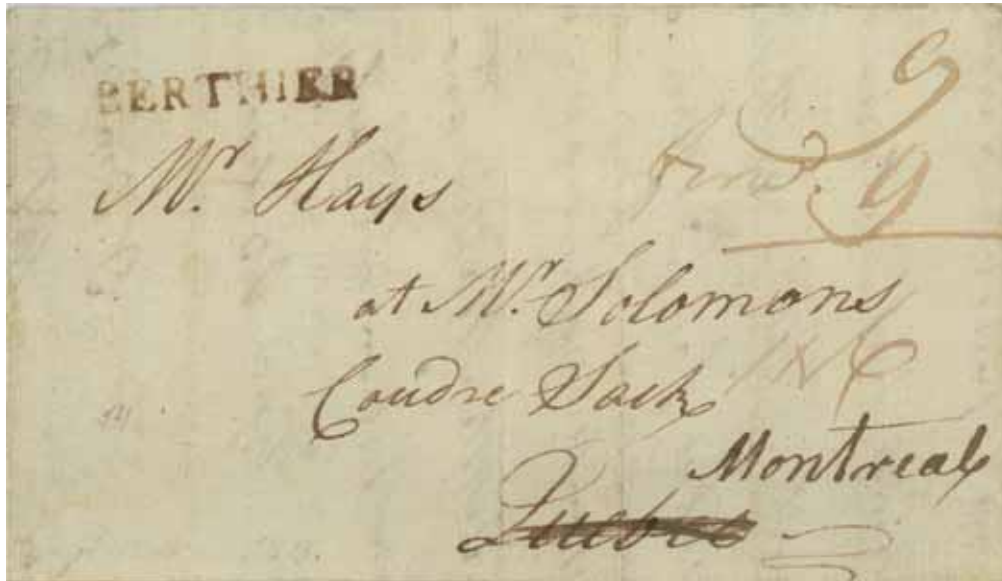 BERTHIER
9
Mr. Hays
9
at Mr. Solomons
Coudre Sack
1N6
Montreal
Quebec